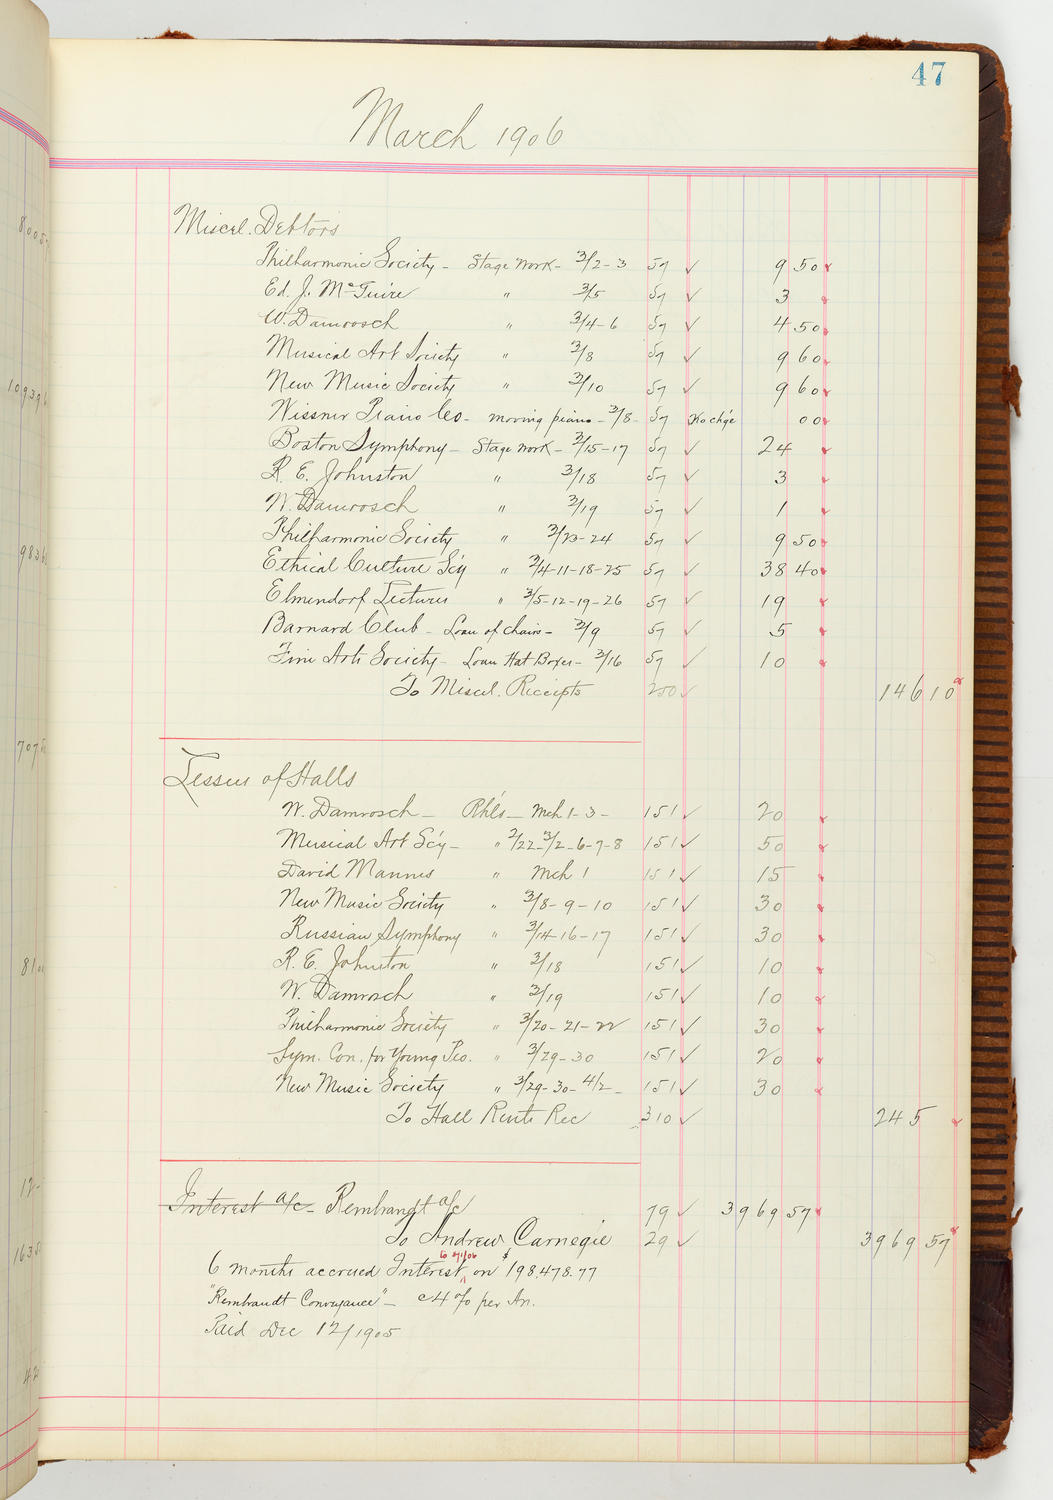 47
March 1906
Miscel. Debtors
Philharmonic Society - Stage Work - 3/2-3 57 ✓ 9 50
Ed. J. McGuire " 3/5 57 ✓ 3
W. Damrosch " 3/4-6 57 ✓ 4 50
Musical Art Society " 3/8 57 ✓ 9 60
New Music Society " 3/10 57 ✓ 9 60
Wissner Piano Co - moving piano - 3/8 - 57 No chge 00
Boston Symphony - Stage Work - 3/15-17 57 ✓ 24
R. E. Johnston " 3/18 57 ✓ 3
W. Damrosch " 3/19 57 ✓ 1
Philharmonic Society " 3/23-24 57 ✓ 9 50
Ethical Culture Scy " 3/4-11-18-25 57 ✓ 38 40
Elmendorf Lectures " 3/5-12-19-26 57 ✓ 19
Barnard Club - Loan of Chairs - 3/9 57 ✓ 5
Fine Arts Society - Loan Hat Boxes - 3/16 57 ✓ 10
To Miscel. Receipts 250 ✓ 146 10
Lessees of Halls
W. Damrosch - Rhls - Mch 1-3- 151 ✓ 20
Musical Art Scy - " 2/22-3/2-6-7-8 151 ✓ 50
David Mannes " Mch 1 151 ✓ 15
New Music Society " 3/8-9-10 151 ✓ 30
Russian Symphony " 3/14-16-17 151 ✓ 30
R. E. Johnston " 3/18 151 ✓ 10
W. Damrosch " 3/19 151 ✓ 10
Philharmonic Society " 3/20-21-22 151 ✓ 30
Sym. Con. for Young Peo. " 3/29-30 151 ✓ 20
New Music Society " 3/29-30-4/2- 151 ✓ 30
To Hall Rents Rec 310 ✓ 245
Interest a/c - Rembrandt a/c 79 ✓ 3969 57
To Andrew Carnegie 29 ✓ 3969 57
6 months accrued Interest on $198,478.77
"Rembrandt Conveyance" - @ 4% per An.
Paid Dec 12/1905